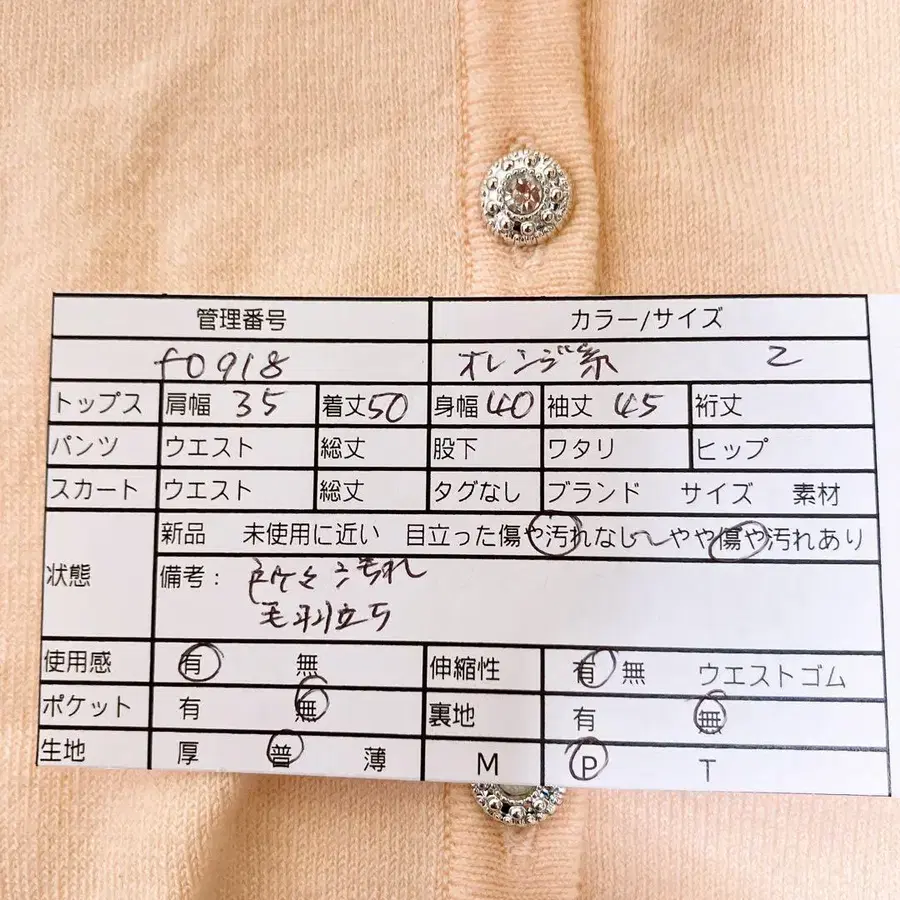 管理番号 カラー/サイズ
f0918 オレンジ系 2
トップス 肩幅 35 着丈50 身幅 40 袖丈 45 裄丈
パンツ ウエスト 総丈 股下 ワタリ ヒップ
スカート ウエスト 総丈 タグなし ブランド サイズ 素材
新品 未使用に近い 目立った傷や汚れなし~やや傷や汚れあり
状態 備考:汚れ
毛羽立ち
使用感 有 無 伸縮性 有 無 ウエストゴム
ポケット 有 無 裏地 有 無
生地 厚 普 薄 M P T